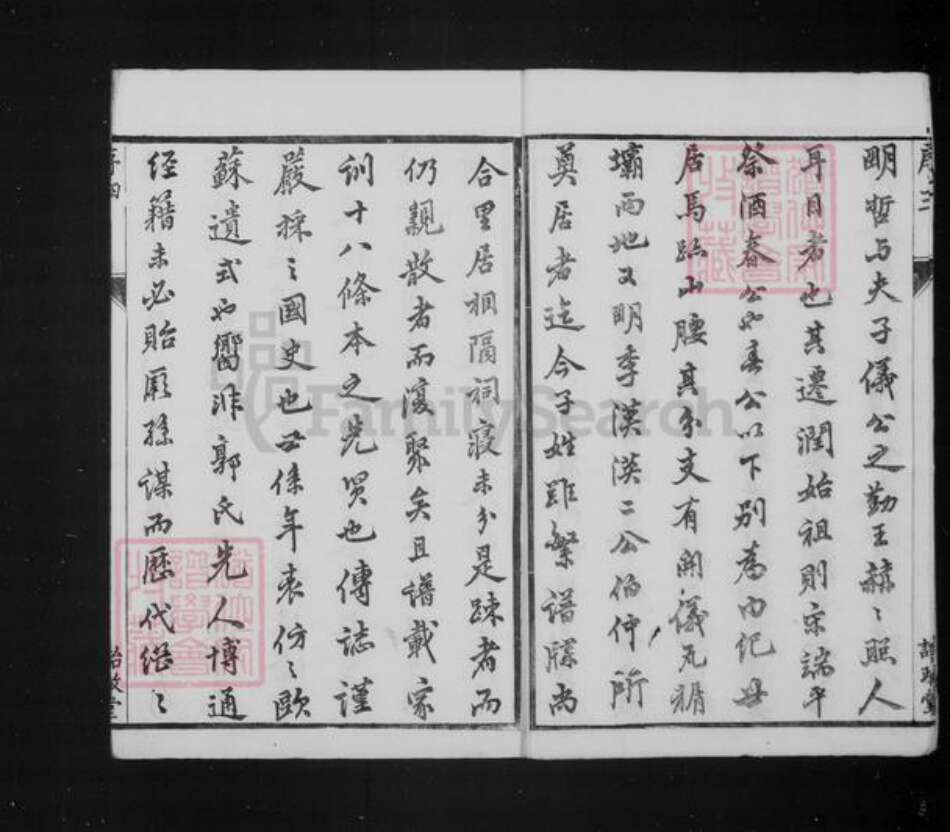 明哲与夫子儀公之勤王赫〻照人
耳目者也其遷潤始祖則宋端平
祭酒春公也春公以下別為內紀毋
居馬跡山腰其分支有開儀瓦
壩而地又明季漢漢二公伯仲所
奠居者迄今子姓雖繁譜牒尚
合里居相隔祠寢未分是踈者而
仍親散者而復聚矣且譜載家
訓十八條本之先賢也傳誌謹
嚴採之國史也世係年表仿之歐
蘇遺式也嚮非郭氏先人博通
经籍未必貽厥孫謀而歷代繼〻
序三
序四
FamilySearch